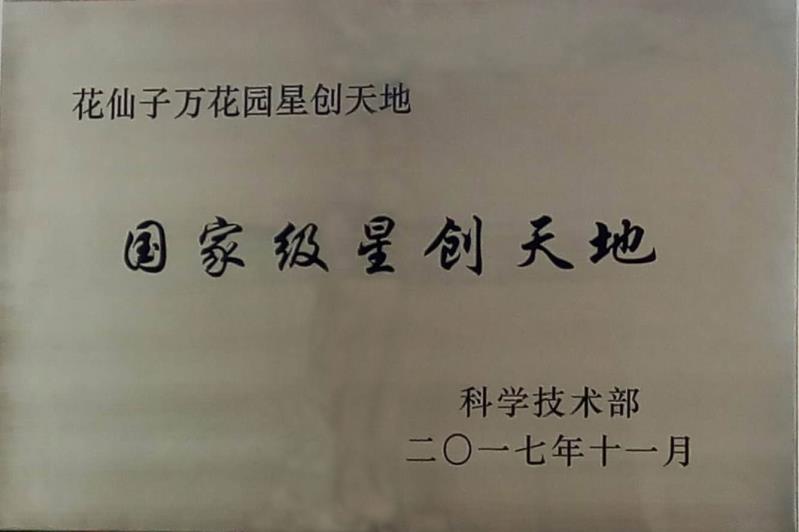 花仙子万花园星创天地
国家级星创天地
科学技术部
二〇一七年十一月